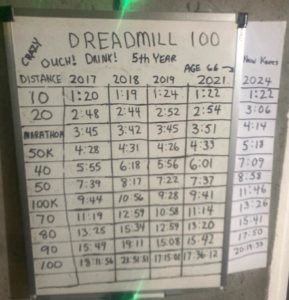 DREADMILL 100
CRAZY
OUCH! DRINK! 5th YEAR AGE 66 → New Knees
DISTANCE 2017 2018 2019 2021 2024
10 1:20 1:19 1:24 1:22 1:22
20 2:48 2:44 2:52 2:54 3:06
MARATHON 3:45 3:42 3:45 3:51 4:14
50K 4:28 4:31 4:26 4:33 5:18
40 5:55 6:18 5:56 6:01 7:09
50 7:39 8:17 7:22 7:37 8:58
100K 9:44 10:56 9:28 9:41 11:46
70 11:19 12:59 10:58 11:14 13:26
80 13:25 15:34 12:59 13:20 15:41
90 15:49 19:11 15:08 15:42 17:50
100 17:36:12